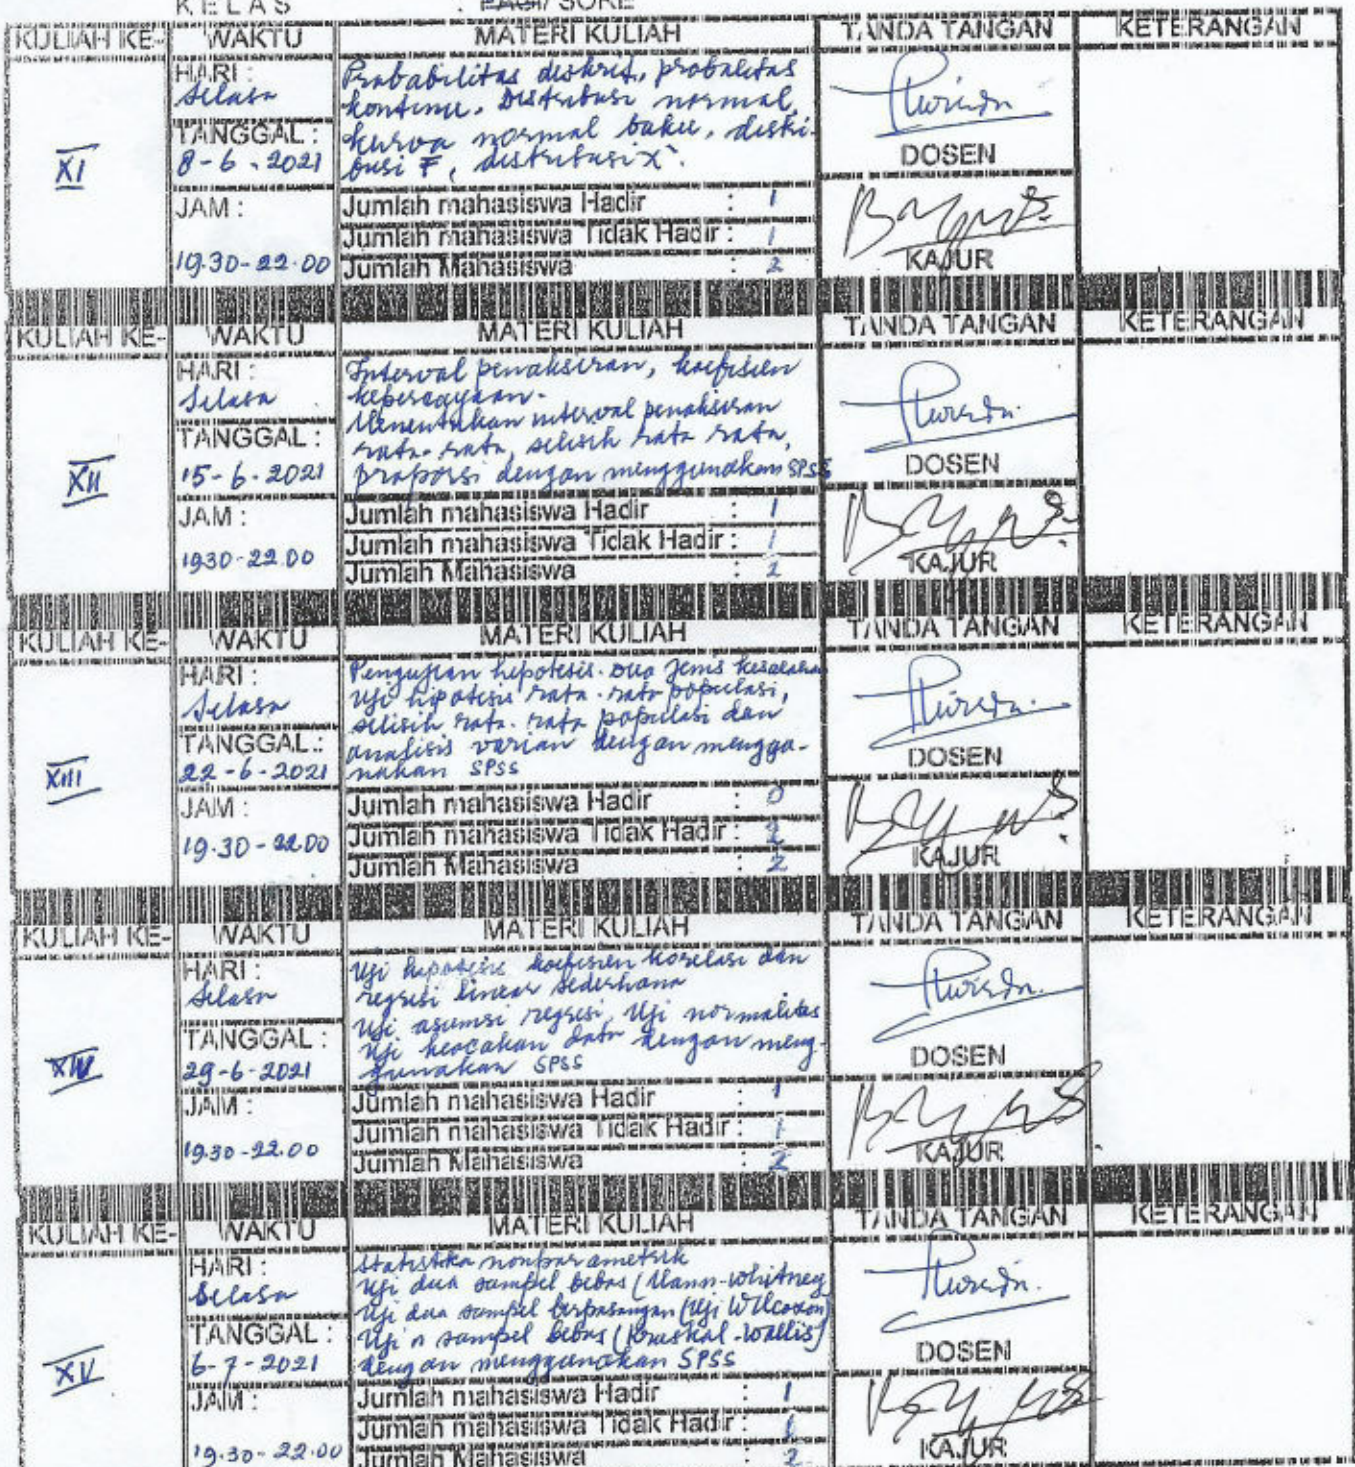 KELAS : PAGI/ SORE
KULIAH KE- WAKTU MATERI KULIAH TANDA TANGAN KETERANGAN
XI
HARI :
Selasa
TANGGAL :
8-6-2021
JAM :
19.30-22.00
Probabilitas diskret, probalitas
kontinu. Distribusi normal,
kurva normal baku, distri-
busi F, distribusi X².
Jumlah mahasiswa Hadir : 1
Jumlah mahasiswa Tidak Hadir : 1
Jumlah Mahasiswa : 2
DOSEN
KAJUR
KULIAH KE- WAKTU MATERI KULIAH TANDA TANGAN KETERANGAN
XII
HARI :
Selasa
TANGGAL :
15-6-2021
JAM :
1930-22.00
Interval penaksiran, koefisien
kepercayaan.
Menentukan interval penaksiran
rata-rata, selisih rata rata,
proporsi dengan menggunakan SPSS
Jumlah mahasiswa Hadir : 1
Jumlah mahasiswa Tidak Hadir : 1
Jumlah Mahasiswa : 2
DOSEN
KAJUR
KULIAH KE- WAKTU MATERI KULIAH TANDA TANGAN KETERANGAN
XIII
HARI :
Selasa
TANGGAL :
22-6-2021
JAM :
19.30-22.00
Pengujian hipotesis. Dua jenis kesalahan
Uji hipotesis rata-rata populasi,
selisih rata-rata populasi dan
analisis varian dengan menggu-
nakan SPSS
Jumlah mahasiswa Hadir : 0
Jumlah mahasiswa Tidak Hadir : 2
Jumlah Mahasiswa : 2
DOSEN
KAJUR
KULIAH KE- WAKTU MATERI KULIAH TANDA TANGAN KETERANGAN
XIV
HARI :
Selasa
TANGGAL :
29-6-2021
JAM :
19.30-22.00
Uji hipotesis koefisien korelasi dan
regresi linear sederhana
Uji asumsi regresi, Uji normalitas
Uji keacakan data dengan meng-
gunakan SPSS
Jumlah mahasiswa Hadir : 1
Jumlah mahasiswa Tidak Hadir : 1
Jumlah Mahasiswa : 2
DOSEN
KAJUR
KULIAH KE- WAKTU MATERI KULIAH TANDA TANGAN KETERANGAN
XV
HARI :
Selasa
TANGGAL :
6-7-2021
JAM :
19.30-22.00
Statistika nonparametrik
Uji dua sampel bebas (Mann-Whitney)
Uji dua sampel berpasangan (Uji Wilcoxon)
Uji n sampel bebas (Kruskal-Wallis)
dengan menggunakan SPSS
Jumlah mahasiswa Hadir : 1
Jumlah mahasiswa Tidak Hadir : 1
Jumlah Mahasiswa : 2
DOSEN
KAJUR